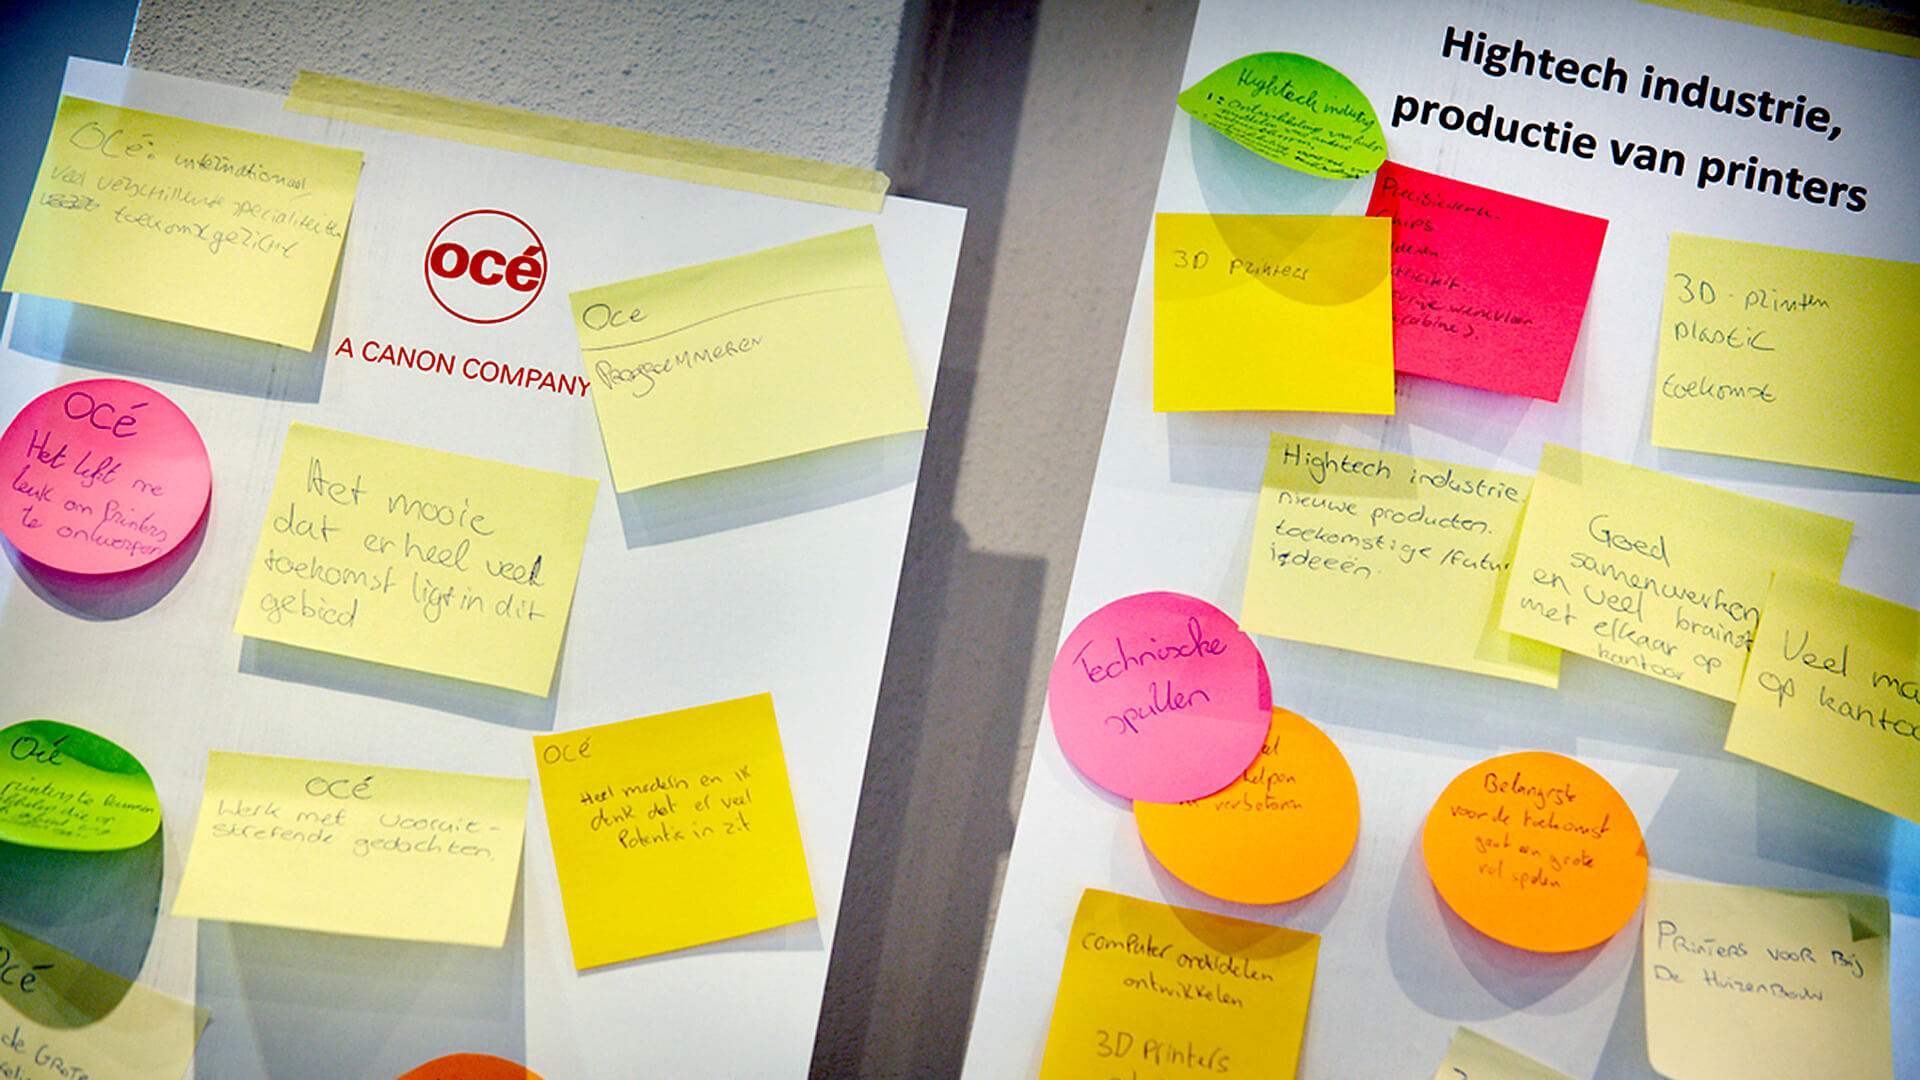 océ
A CANON COMPANY
Océ: internationaal,
veel verschillende specialiteiten
toekomstgericht
Océ
Programmeren
océ
Het lijkt me
leuk om printers
te ontwerpen
Het mooie
dat er heel veel
toekomst ligt in dit
gebied
Océ
printers te
océ
Werk met vooruit-
strefende gedachten.
océ
Heel modern en ik
denk dat er veel
Potentie in zit
océ
de GROTE
Hightech industrie,
productie van printers
Hightech industrie
1: ontwikkeling van
Precisiewerk.
Chips
3D printers
3D-printen
plastic
toekomst
Hightech industrie.
nieuwe producten.
toekomstige/futur
ideeën.
Goed
samenwerken
en veel brainst
met elkaar op
kantoor
Veel ma
op kanto
Technische
spullen
helpen
verbeteren
Belangrijkste
voor de toekomst
gaat een grote
rol spelen
computer onderdelen
ontwikkelen
3D printers
PRINTERS VOOR Bij
De HuizenBouw